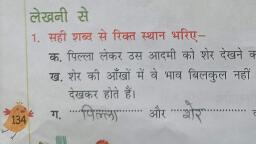 लेखनी से
1. सही शब्द से रिक्त स्थान भरिए–
क. पिल्ला लेकर उस आदमी को शेर देखने क
ख. शेर की आँखों में वे भाव बिलकुल नहीं
देखकर होते हैं।
ग. पिल्ला और शेर
134